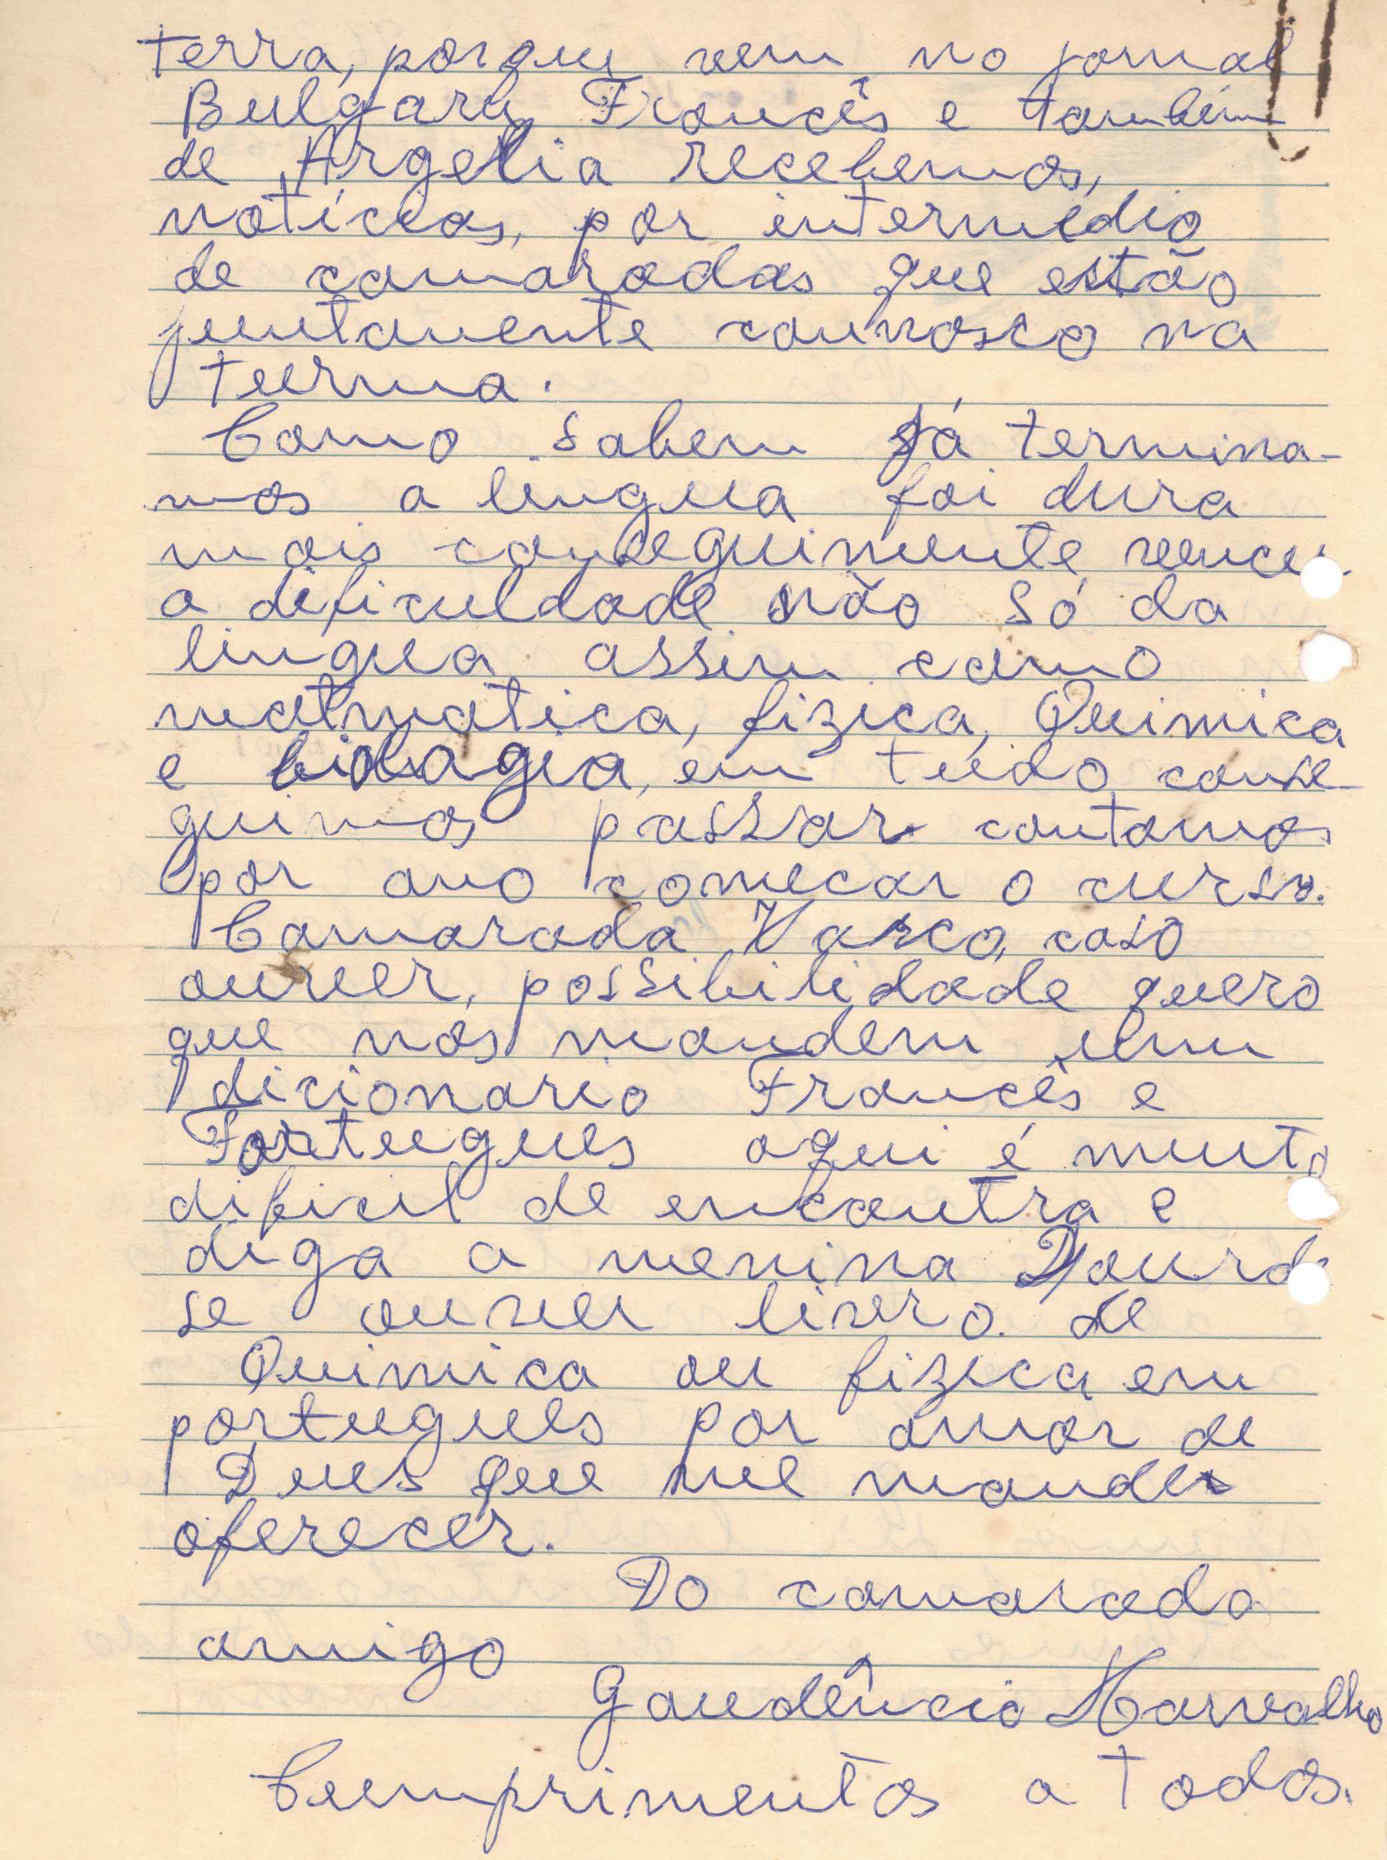 terra, porque vem no jornal
Bulgara, Francês e também
de Argelia recebemos,
notíceas, por intermédio
de camaradas que estão
juntamente counosco na
turma.
Como sabem Já termina-
mos a lingua foi dura
mais conseguimente vence
a dificuldade não só da
lingua assim como
matmatica, fizica, Quimica
e biologia, em tudo conse-
guimos passar contamos
por ano comecar o curso.
Camarada Vasco, caso
ouver, possibilidade quero
que nós mandem um
dicionario Francês e
Portugues aqui é muito
dificil de encontra e
diga a menina
se ouver livro de
Quimica ou fizica em
portugues por amor de
Deus que me mande
oferecer.
Do camarada
amigo
Gaudêncio Harvalho
Cumprimentos a todos.